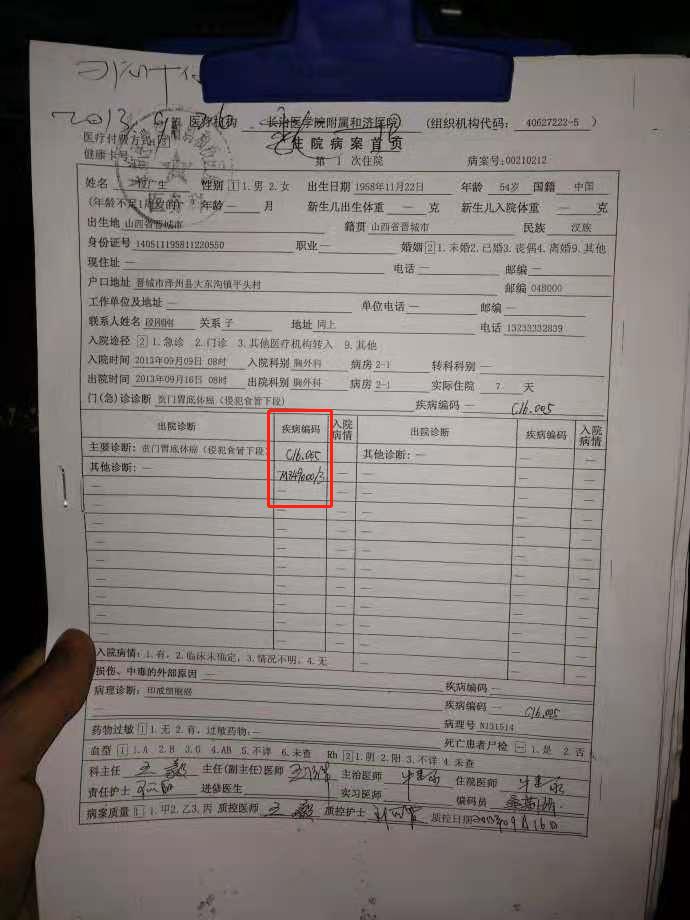 2013.9.
医疗机构 长治医学院附属和济医院 (组织机构代码: 40627222-5 )
医疗付费方式
住院病案首页
健康卡号
第 1 次住院 病案号:00210212
姓名 广生 性别 1 1.男 2.女 出生日期 1958年11月22日 年龄 54岁 国籍 中国
(年龄不足1周岁的) 年龄 — 月 新生儿出生体重 — 克 新生儿入院体重 — 克
出生地 山西省晋城市 籍贯 山西省晋城市 民族 汉族
身份证号 140511195811220550 职业 — 婚姻 2 1.未婚2.已婚3.丧偶4.离婚9.其他
现住址 — 电话 — 邮编 —
户口地址 晋城市泽州县大东沟镇平头村 邮编 048000
工作单位及地址 — 单位电话 — 邮编 —
联系人姓名 段刚刚 关系 子 地址 同上 电话 13233332839
入院途径 2 1.急诊 2.门诊 3.其他医疗机构转入 9.其他
入院时间 2013年09月09日 08时 入院科别 胸外科 病房 2-1 转科科别 —
出院时间 2013年09月16日 08时 出院科别 胸外科 病房 2-1 实际住院 7 天
门(急)诊诊断 贲门胃底体癌(侵犯食管下段) 疾病编码 — C16.005
出院诊断 疾病编码 入院病情 出院诊断 疾病编码 入院病情
主要诊断: 贲门胃底体癌(侵犯食管下段) C16.005 — 其他诊断: — — —
其他诊断: — M849000/3 —
入院病情: 1.有, 2.临床未确定, 3.情况不明, 4.无
损伤、中毒的外部原因 — 疾病编码 —
病理诊断: 印戒细胞癌 疾病编码 — C16.005
病理号 N131514
药物过敏 1 1.无 2.有, 过敏药物: — 死亡患者尸检 — 1.是 2.否
血型 1 1.A 2.B 3.O 4.AB 5.不详 6.未查 Rh 2 1.阴 2.阳 3.不详 4.未查
科主任 主任(副主任)医师 主治医师 住院医师
责任护士 进修医生 实习医师 编码员
病案质量 1 1.甲2.乙3.丙 质控医师 质控护士 质控日期2013年09月16日